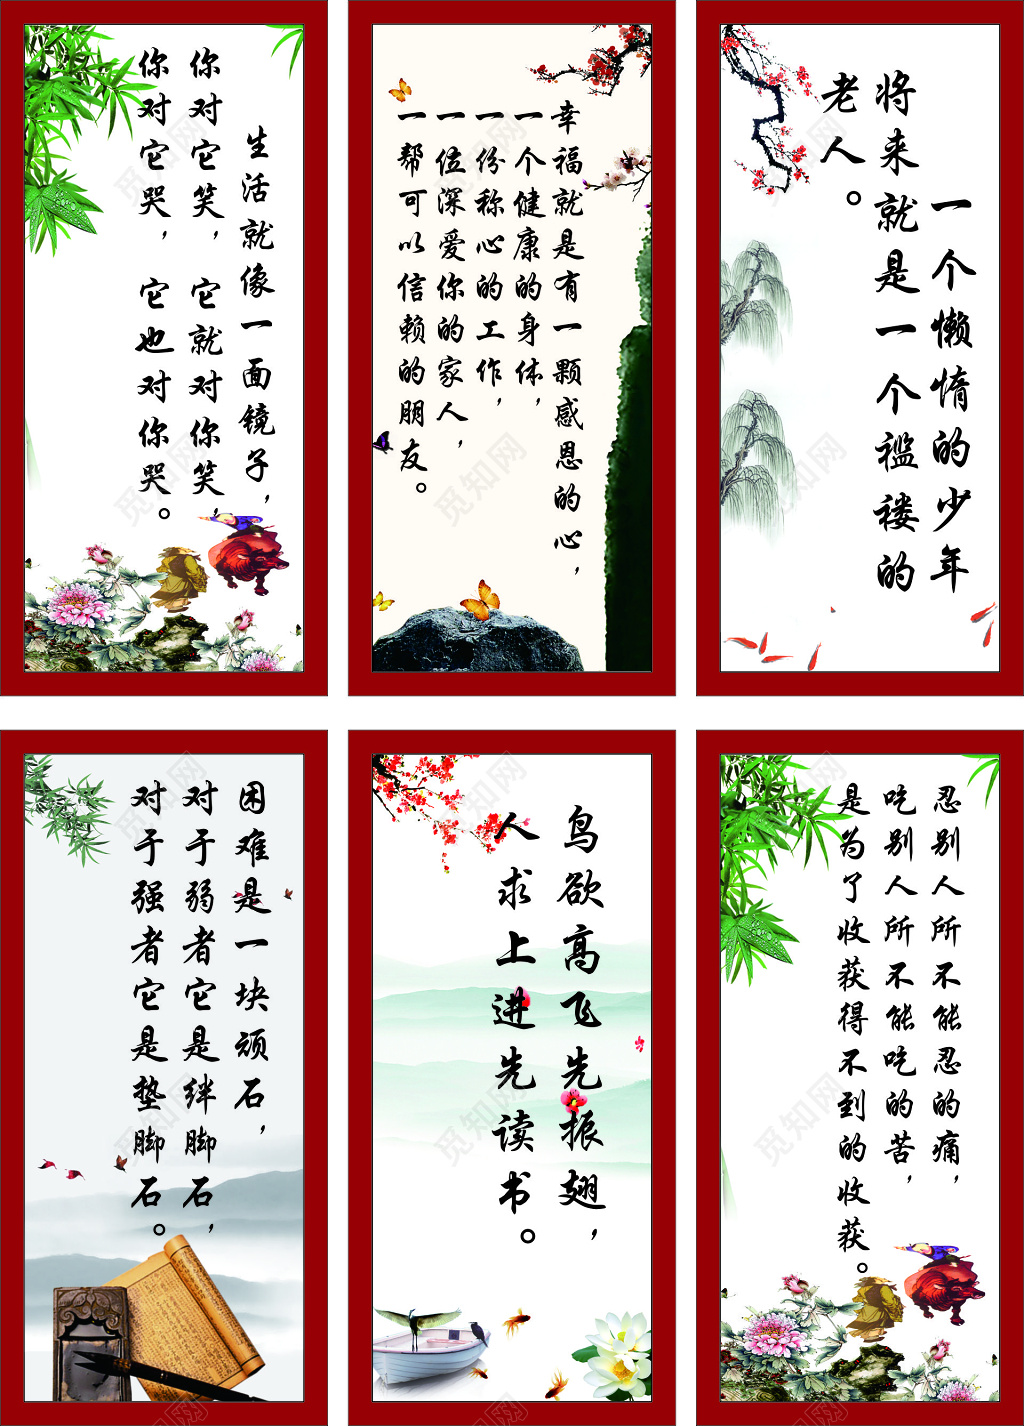 生活就像一面镜子，
你对它笑，它就对你笑，
你对它哭，它也对你哭。
幸福就是有一颗感恩的心，
一个健康的身体，
一份称心的工作，
一位深爱你的家人，
一帮可以信赖的朋友。
一个懒惰的少年
将来就是一个褴褛的
老人。
困难是一块顽石，
对于弱者它是绊脚石，
对于强者它是垫脚石。
鸟欲高飞先振翅，
人求上进先读书。
忍别人所不能忍的痛，
吃别人所不能吃的苦，
是为了收获得不到的收获。
觅知网